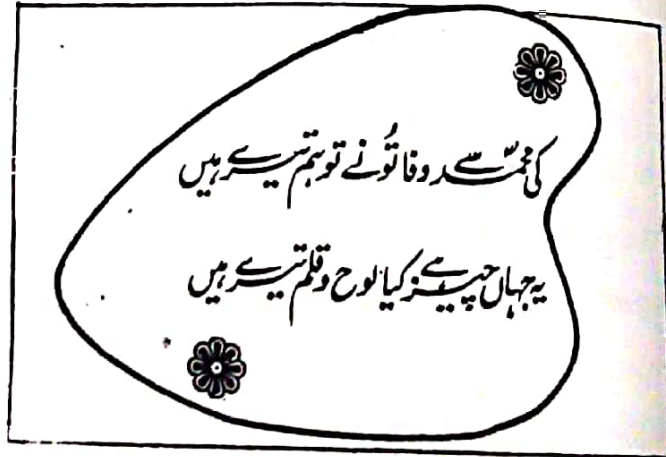 کی محمدؐ سے وفا تُو نے تو ہم تیرے ہیں
یہ جہاں چیز ہے کیا لوح و قلم تیرے ہیں